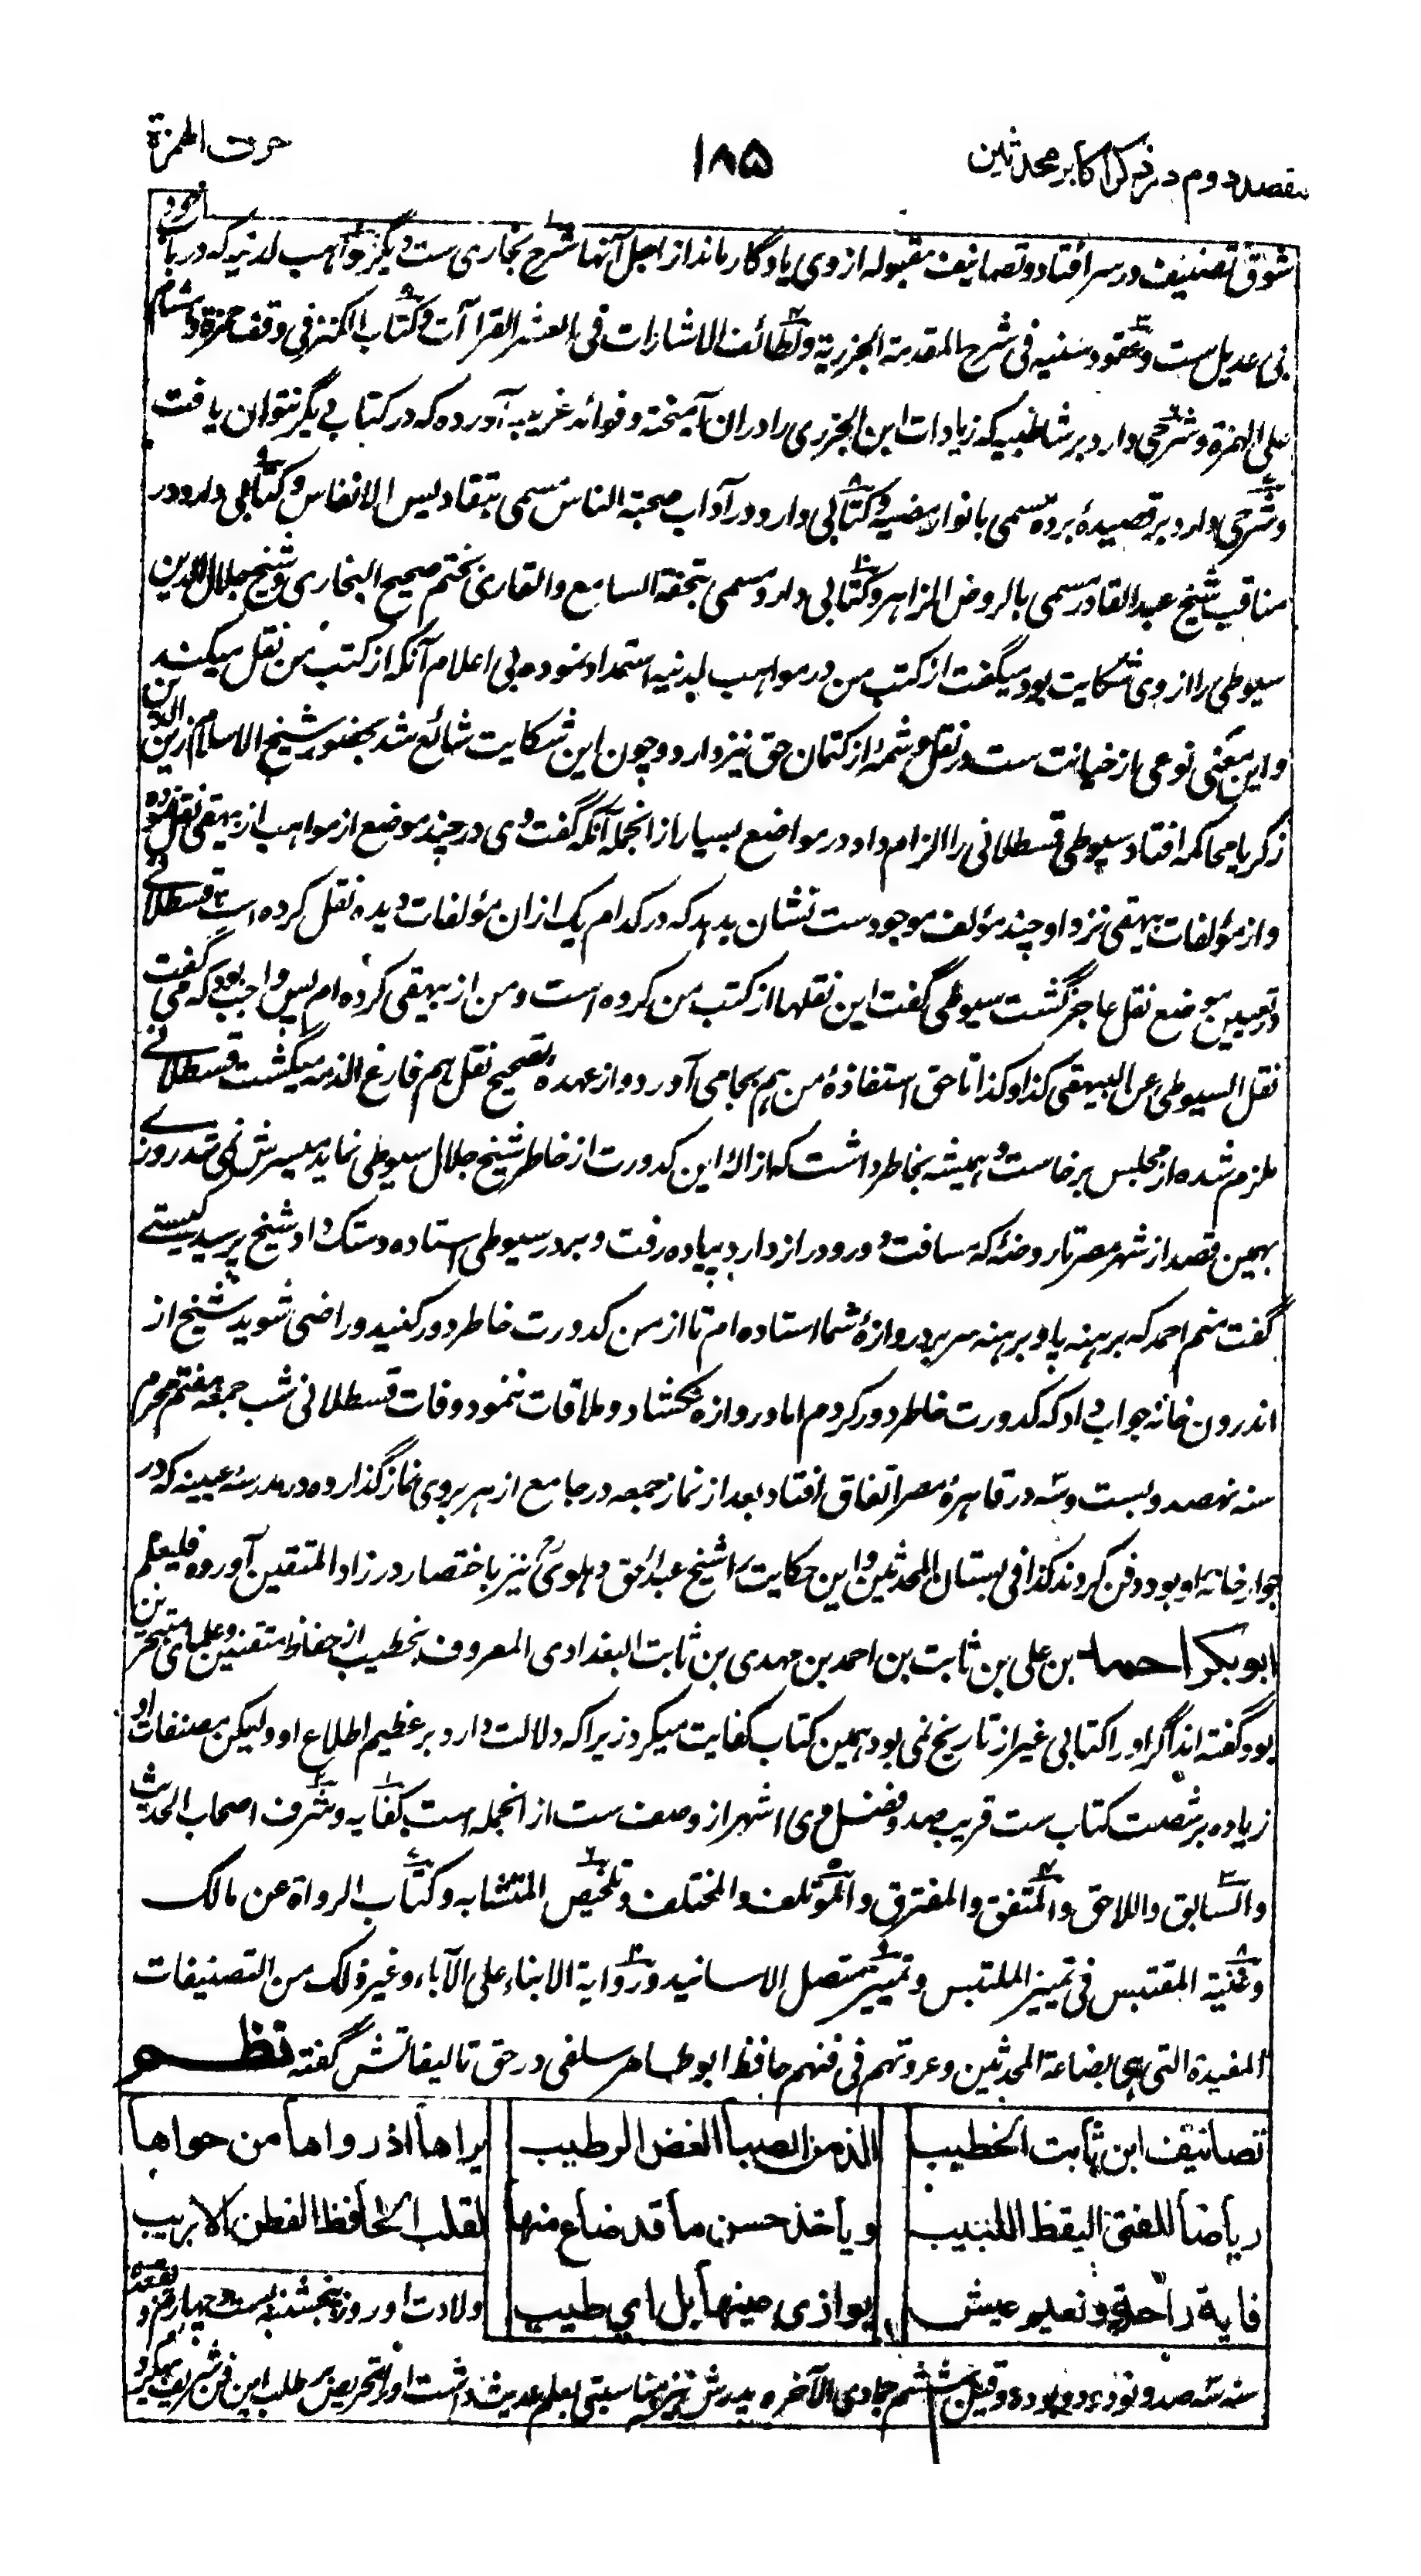 مقصد دوم در ذکر اکابر محدثین
۱۸۵
حرف الهمزة
شوق تصنیف در سر افتاد و تصانیف مقبوله از وی یادگار ماند از اجل آنها شرح بخاری ست دیگر مواهب لدنیه که در باب خود
بی عدیل ست و عقود سنیه فی شرح المقدمة الجزریة و لطائف الاشارات فی العشر القراآت و کتاب الکنز فی وقف حمزة و هشام
علی الهمزة و شرحی دارد بر شاطبیه که زیادات ابن الجزری را در ان آمیخته و فوائد غریبه آورده که در کتاب دیگر نتوان یافت
و شرحی دارد بر قصیدهٔ برده مسمی بانوار مضیه و کتابی دارد در آداب صحبة الناس مسمی بنقادیس الانفاس و کتابی دارد در
مناقب شیخ عبد القادر مسمی بالروض الزاهر و کتابی دارد مسمی بتحفة السامع والقاری بختم صحیح البخاری و شیخ جلال الدین
سیوطی را از وی شکایت بود میگفت از کتب من در مواهب لدنیه استمداد نموده بی اعلام آنکه از کتب من نقل میکند
و این معنی نوعی از خیانت ست در نقل و شمهٔ از کتمان حق نیز دارد و چون این شکایت شائع شد بحضور شیخ الاسلام زین الدین
زکریا محاکمه افتاد سیوطی قسطلانی را الزام داد در مواضع بسیار از انجمله آنکه گفت وی در چند موضع از مواهب از بیهقی نقل نموده
و از مؤلفات بیهقی نزد او چند مؤلف موجود ست نشان بدهد که در کدام یک ازان مؤلفات دیده نقل کرده است قسطلانی
در تعیین موضع نقل عاجز گشت سیوطی گفت این نقلها از کتب من کرده است و من از بیهقی کرده ام پس واجب بود که می گفت
نقل السیوطی عن البیهقی کذا و کذا تا حق استفادهٔ من هم بجا می آورد و از عهده تصحیح نقل هم فارغ الذمه میگشت قسطلانی
ملزم شده از مجلس برخاست و همیشه بخاطر داشت که ازالهٔ این کدورت از خاطر شیخ جلال سیوطی نماید میسرش نمی شد روزے
بهمین قصد از شهر مصر تا روضه که مسافت دور و دراز دارد پیاده رفت و بر در سیوطی استاده دستک داد شیخ پرسید کیستے
گفت منم احمد که برهنه پا و برهنه سر بر دروازهٔ شما استاده ام تا از من کدورت خاطر دور کنید و راضی شوید شیخ از
اندرون خانه جواب داد که کدورت خاطر دور کردم اما دروازه نکشاد و ملاقات ننمود وفات قسطلانی شب جمعه هفتم محرم
سنه نهصد و بست و سه در قاهرهٔ مصر اتفاق افتاد بعد از نماز جمعه در جامع ازهر بروی نماز گذارده در مدرسهٔ عینیه که در
جوار خانهٔ او بود دفن کردند کذا فی بستان المحدثین و این حکایت را شیخ عبد الحق دهلوی نیز باختصار در زاد المتقین آورده فلیعلم
ابوبکر احمد بن علی بن ثابت بن احمد بن مهدی بن ثابت البغدادی المعروف بخطیب از حفاظ متقنین و علمای متبحرین
بود گفته اند اگر او را کتابی غیر از تاریخ نمی بود همین کتاب کفایت میکرد زیرا که دلالت دارد بر عظیم اطلاع او و لیکن مصنفات او
زیاده بر شصت کتاب ست قریب صد و فضل وی اشهر از وصف ست از انجمله است کفایه و شرف اصحاب الحدیث
والسابق واللاحق والمتفق والمفترق والمؤتلف والمختلف و تلخیص المتشابه و کتاب الرواة عن مالک
و غنیة المقتبس فی تمییز الملتبس و تمییز متصل الاسانید و روایة الابناء علی الآباء و غیر ذلک من التصنیفات
المفیدة التی هی بضاعة المحدثین و عروتهم فی فنهم حافظ ابو طاهر سلفی در حق تالیفاتش گفته نظـــم
تصانیف ابن ثابت الخطیب الذ من الصبا الغض الرطیب یراها اذ رواها من حواها
ریاضا للفتی الیقظ اللبیب و یأخذ حسن ما قد ضاع منها لقلب الحافظ الفطن الاریب
فایة راحة ونعیم عیش یوازی عینها بل ای طیب ولادت او روز پنجشنبه بست و چهارم ذو القعده
سنه سه صد و نود و دو بوده و قیل ششم جمادی الآخره پدرش نیز مناسبتی بعلم حدیث داشت او را تحریض بر طلب این فن شریف میکرد